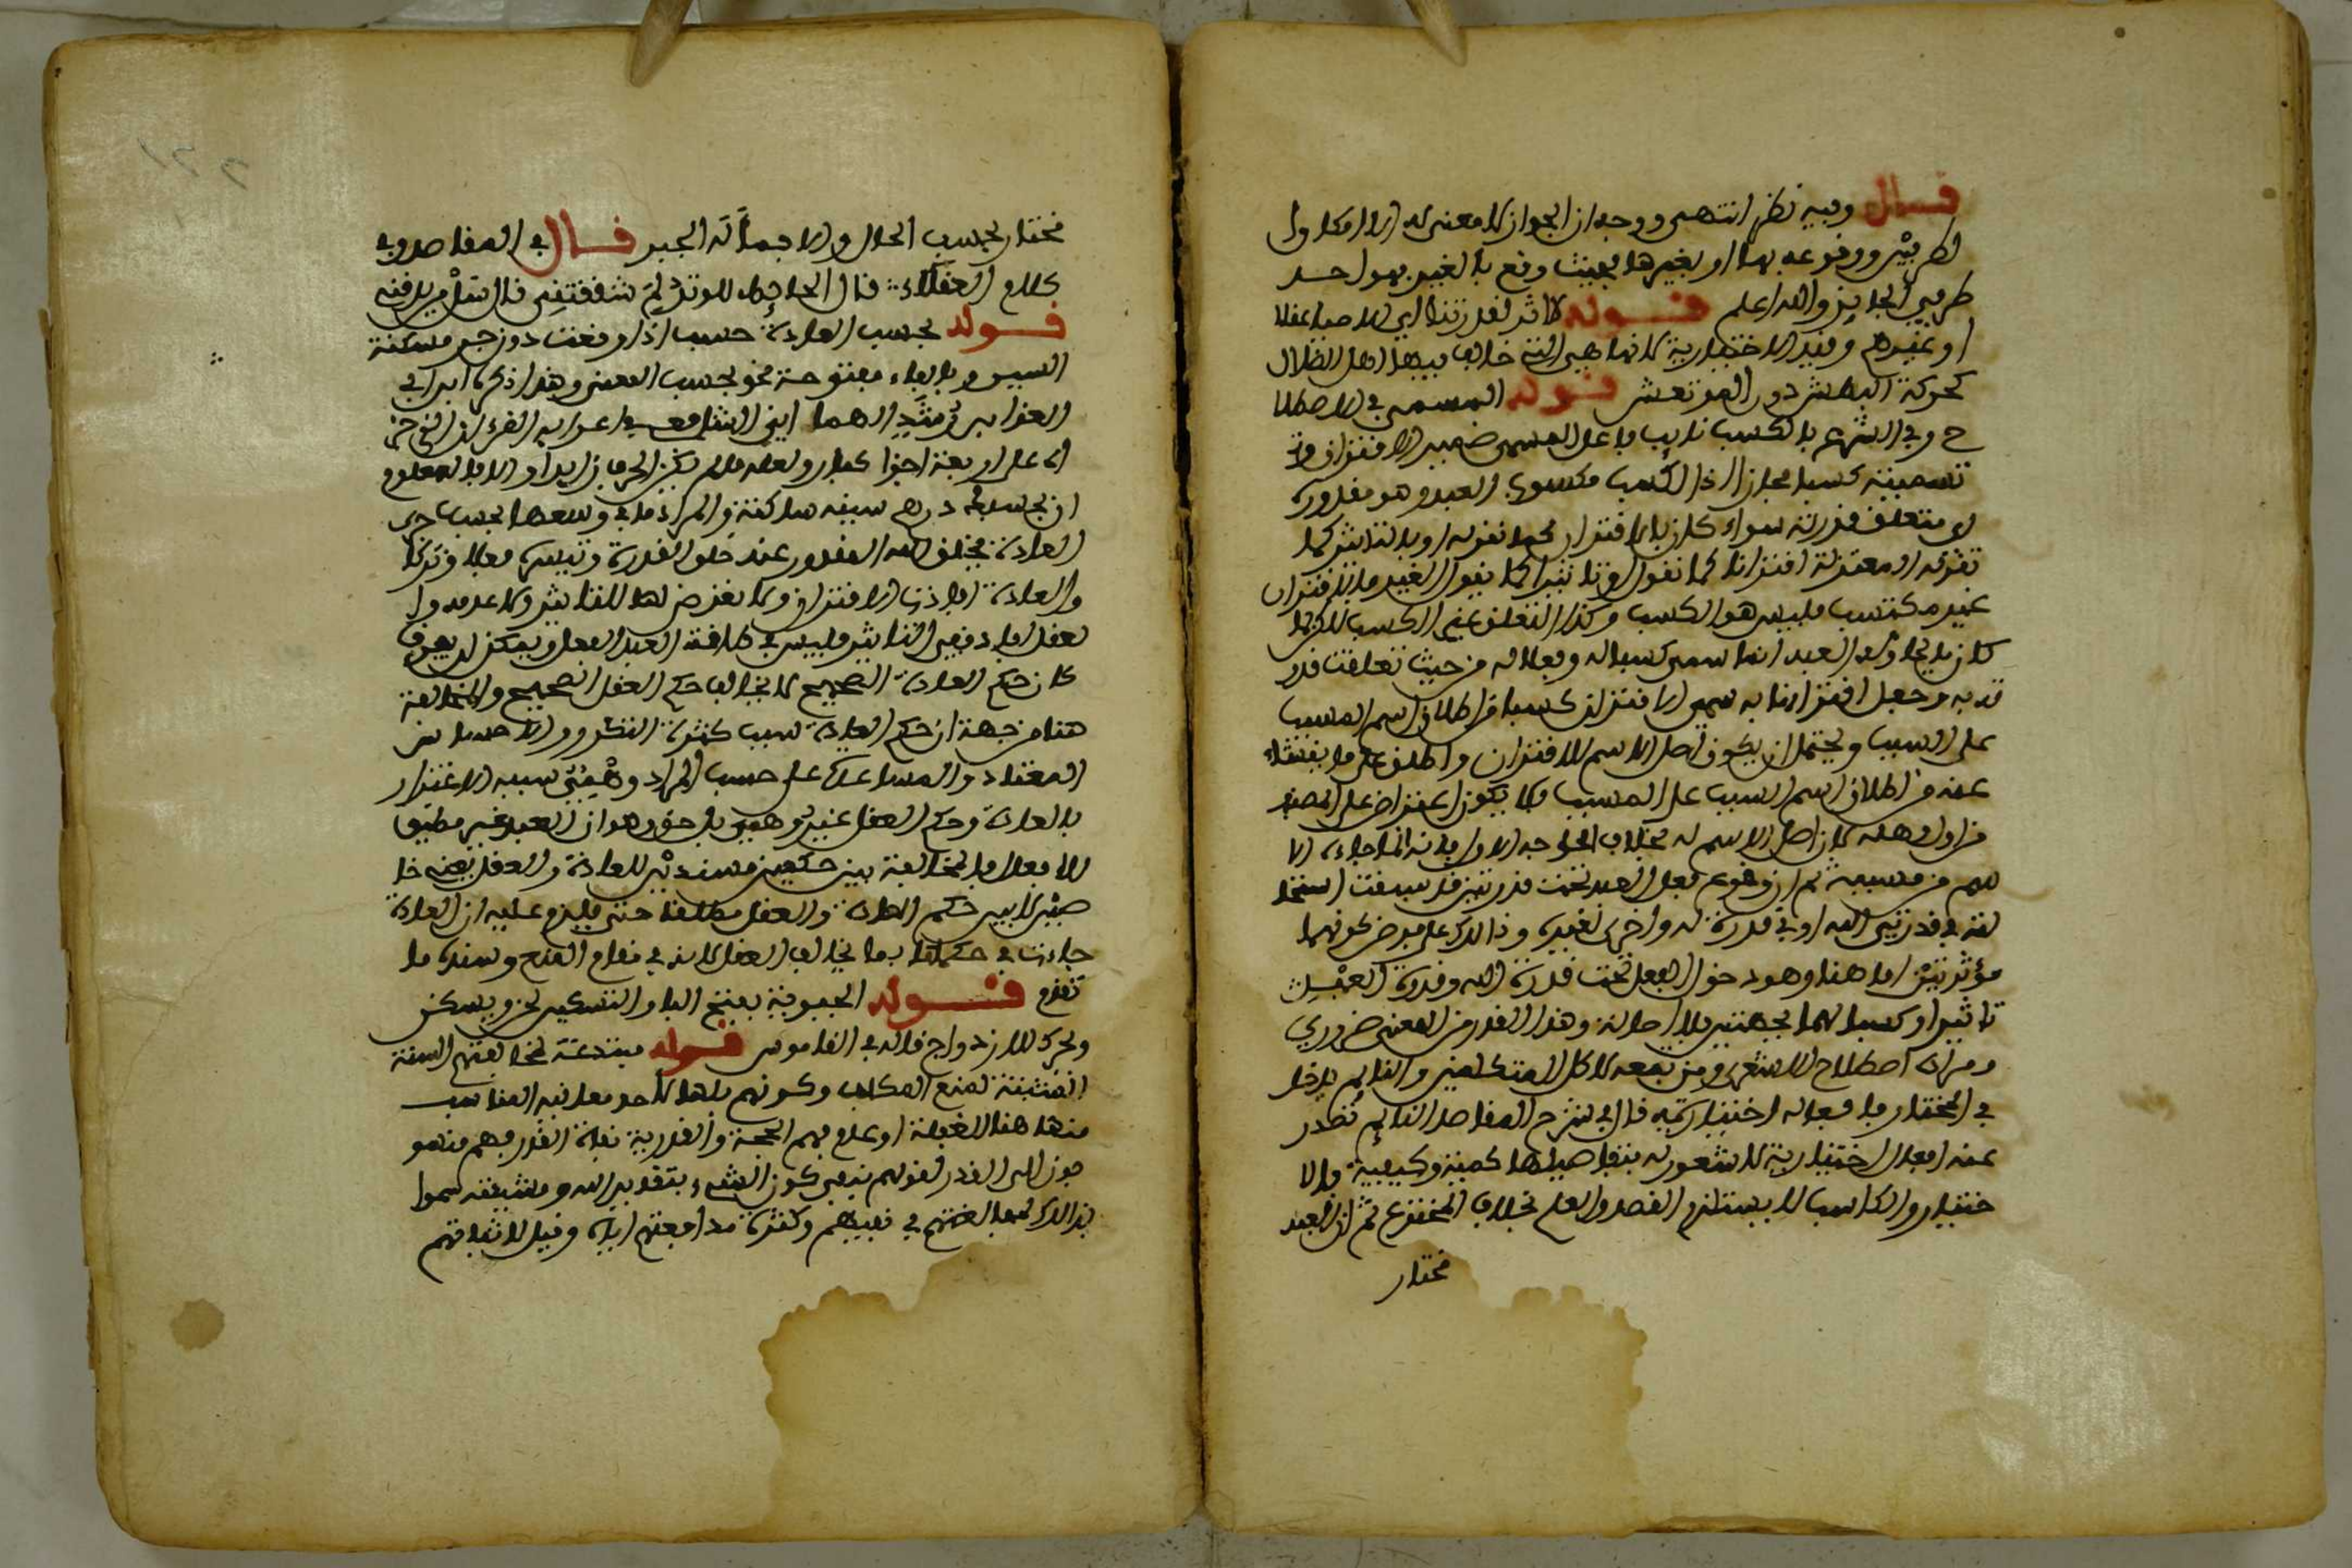 قال وفيه نظر انتهى ووجه ان الجواز لا معنى له الا امكان
لطريين ووقوعه بهما او بغيرهما بحيث وقع بالغير بهو احد
طرفي الجايز والله اعلم قوله لا اثر لقدرتنا اي الاصباعقلا
او غيرهم وقيد الاختيارية لانها هي التي خالف فيها اهل الضلال
كحركة البطش دون المرتعش قوله المسمى في الاصطلا
ح وفي الشرع بالكسب نايب فاعل المسمى ضمير الاقتران و
تسميته كسبا مجازا اذ الكسب مكسوب العبد وهو مقدوره
اي متعلق قدرته سواء كان بالاقتران كما نقوله او بالتاثير كما
تقوله المعتزلة اقترانا كما نقول او تاثيرا كما يقول الغير فالاقتران
غير مكتسب فليس هو الكسب وكذا التعلق غير الكسب لاكن لما
كان ما يحاوله العبد انما سمي كسبا له وفعلا له من حيث تعلقت قدر
ته به وجعل اقترانها به سمي الاقتران كسبا من اطلاق اسم المسبب
على السبب ويحتمل ان يكون اصل الاسم للاقتران واطلق على ما ينشاء
عنه من اطلاق اسم السبب على المسبب فلا يكون اعتراض على المصنف
من اول وهلة لان اصل الاسم له بخلاف الوجه الاول فانه انما جاءه الا
سم من مسببه ثم ان وقوع فعل العبد تحت قدرتين قد سبقت استحا
لته في قدرتي الله او في قدرة له واخرى لغيره وذالك على فرض كونهما
مؤثرتين اما هنا وهو دخول الفعل تحت قدرة الله وقدرة العبد
تاثيرا وكسبا لهما بجهتين فلا احالة وهذا القدر من المعنى ضروري
ومراده اصطلاح الاشعري ومن تبعه لا كل المتكلمين والنايم داخل
في المختار فافعاله اختيارية قال في شرح المقاصد النايم تصدر
عنه افعال اختيارية لا شعور له بتفاصيلها كمية وكيفية فالا
ختيار والكاسب لا يستلزم القصد والعلم بخلاف المخترع ثم ان العبد
مختار
مختار بحسب الحال والا فمآله الجبر قال في المقاصد وفي
كلام العقلاء قال الحايط للوتد لم تشقني قال سل من يدقني
قوله بحسب العادة حسب اذا وقعت دون جر مسكنة
السين وبالباء مفتوحة نحو بحسب المعنى وهذا ذكره ابن ابي
العز ابن رشيد الهمداني الشافعي في اعراب القرءان الذي
اه على اربعة اجزا كبار ولعله ما لم يكن الجر بازايد او الا بالمعلوم
ان بحسبك درهم سينه ساكنة والمراد ما في وسعها بحسب جري
العادة بخلق الله المقدور عند خلق القدرة وتيسره فعلا وتركا
والعادة افادت الاقتران ولا تعرض لها للتاثير ولا عدمه وا
لعقل افاد نفي التاثير فليس في طاقة العبد الفعل ويمكن ان يعرف
كان حكم العادة الصحيح لا يخالف حكم العقل الصحيح والمخالفة
هنا من جهة ان حكم العادة سبب كثرة التكرر والاحساس
المعتاد والمساعدة على حسب المراد وهمي سببه الاغترار
بالعادة وحكم العقل غير وهمي بل حق وهو ان العبد غير مطيق
للافعال فالمخالفة بين حكمين مسندين للعادة والعقل بعينه خا
صين لا بين حكم العادة والعقل مطلقا حتى يلزم عليه ان العادة
جاءت في حكمها بما يخالف العقل لانه في مقام المنع وسنده ما
تقدم قوله الجبرية بفتح الباء والتسكين لحن ويسكن
ويحرك للازدواج قاله في القاموس قوله مبتدعة لمخالفتهم السنة
المثبتة لمنع المكلف وكونهم بلها لاحد معانيه المناسب
منها هنا للغفلة او عدم فهم الحجة والقدرية نفاة القدر فهم منسو
بون الى القدر لقولهم بنفي كون الشيء بتقدير الله ومشيئته سموا
بذالك لمبالغتهم في نفيهم وكثرة مدافعتهم اياه وقيل لاثباتهم